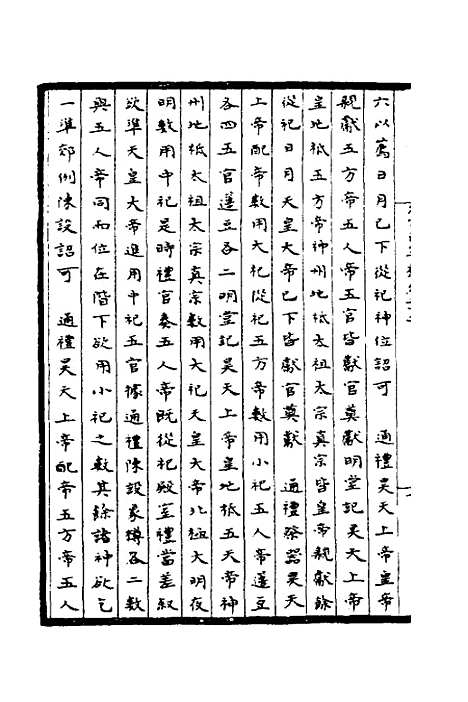 六以薦日月已下從祀神位詔可　通禮昊天上帝皇帝
親獻五方帝五人帝五官皆獻官奠獻明堂記昊天上帝
皇地祇五方帝神州地祇太祖太宗真宗皆皇帝親獻餘
從祀日月天皇大帝已下皆獻官奠獻　通禮祭器昊天
上帝配帝數用大祀從祀五方帝數用小祀五人帝籩豆
各四五官籩豆各二明堂記昊天上帝皇地祇五天帝神
州地祇太祖太宗真宗數用大祀天皇大帝北極大明夜
明數用中祀是時禮官奏五人帝既從祀殿室禮當差敘
欲準天皇大帝進用中祀五官據通禮陳設象樽各二數
與五人帝同和位在階下欲用小祀之數其餘諸神欲乞
一準郊例陳設詔可　通禮昊天上帝配帝五方帝五人